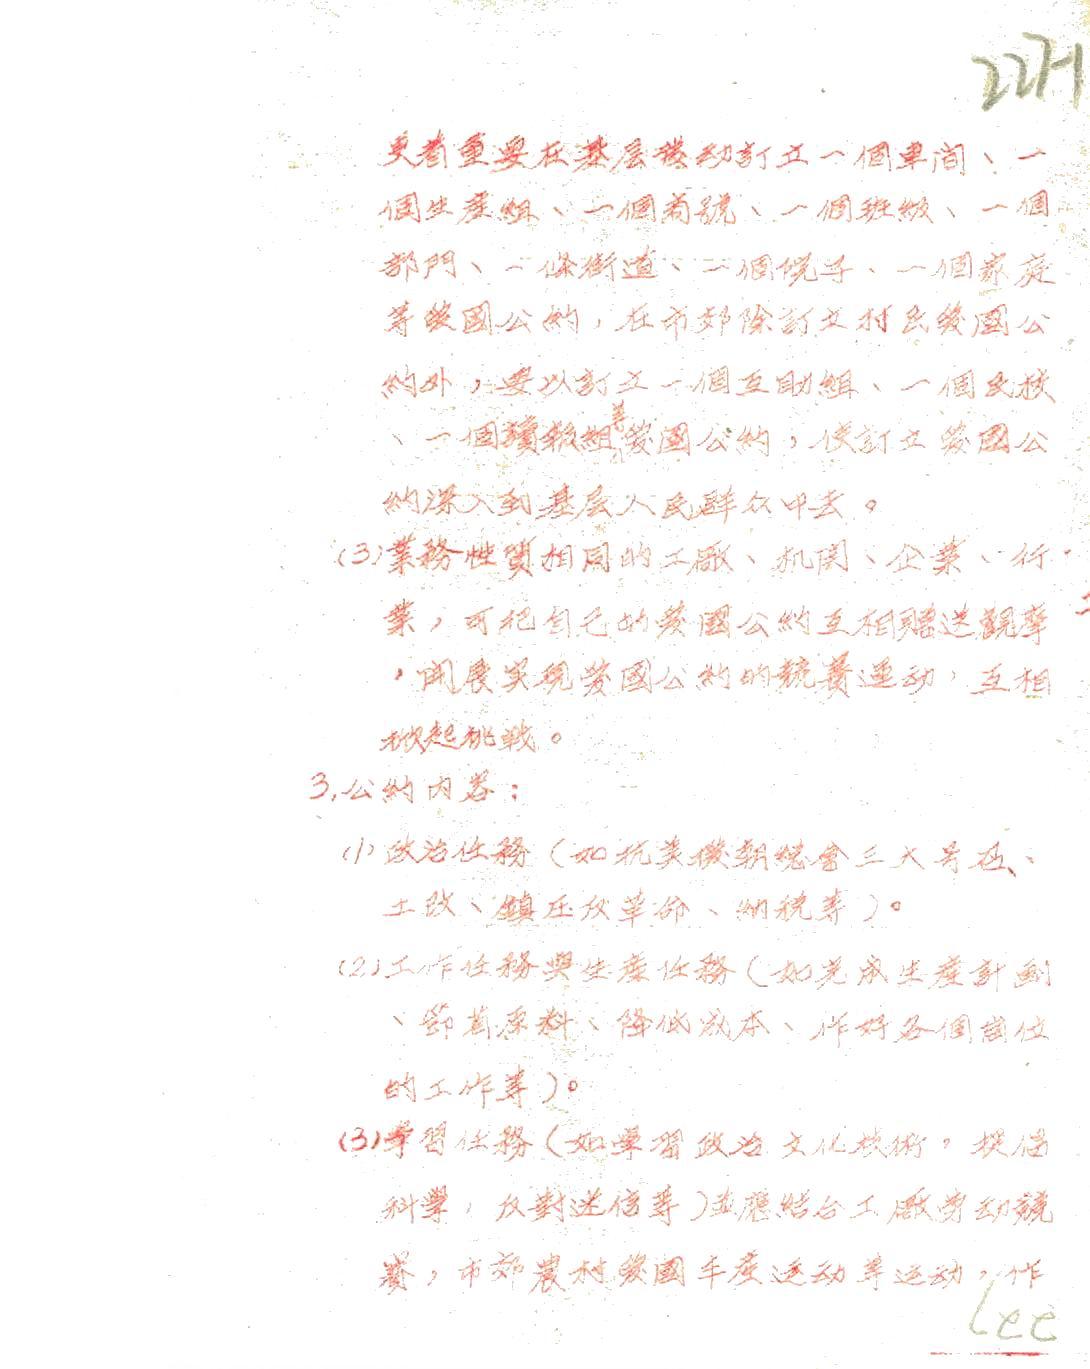 更着重要在基层發动訂立一個車间、一
個生產組、一個商號、一個班級、一個
部門、一條街道、一個院子、一個家庭
等愛國公約，在市郊除訂立村民愛國公
約外，要以訂立一個互助組、一個民校
、一個讀報組等愛國公約，使訂立愛國公
約深入到基层人民群众中去。
(3)業務性質相同的工廠、机関、企業、行
業，可把自己的愛國公約互相贈送觀摩
，開展实現愛國公約的競賽運动，互相
掀起挑战。
3.公約內容：
(1)政治任務（如抗美援朝總會三大号召、
土改、鎮压反革命、納税等）。
(2)工作任務與生產任務（如完成生產計劃
、節省原料、降低成本、作好各個崗位
的工作等）。
(3)學習任務（如學習政治文化技術，提倡
科學，反對迷信等）並應結合工廠劳动競
賽，市郊農村愛國丰產运动等运动，作
Lee